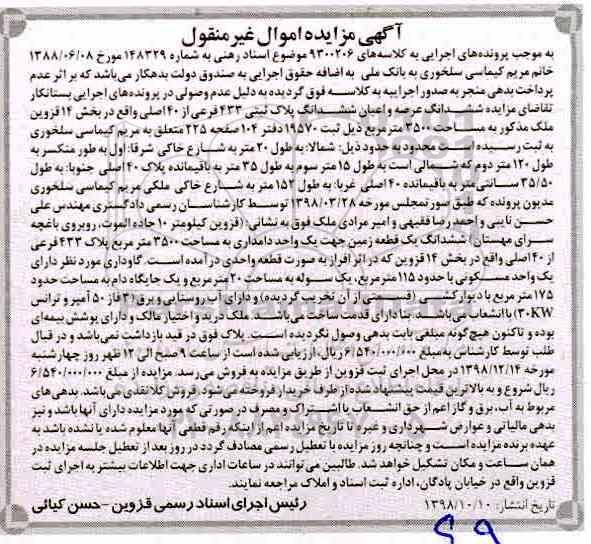 آگهی مزایده اموال غیر منقول
به موجب پرونده‌های اجرایی به کلاسه‌های ۹۳۰۰۲۰۶ موضوع اسناد رهنی به شماره ۱۴۸۳۲۹ مورخ ۱۳۸۸/۰۶/۰۸
خانم مریم کیماسی سلخوری به بانک ملی به اضافه حقوق اجرایی به صندوق دولت بدهکار می‌باشد که بر اثر عدم
پرداخت بدهی منجر به صدور اجراییه به کلاسه فوق گردیده به دلیل عدم وصولی در پرونده‌های اجرایی بستانکار
تقاضای مزایده ششدانگ عرصه و اعیان ششدانگ پلاک ثبتی ۴۳۳ فرعی از ۴۰ اصلی واقع در بخش ۱۴ قزوین
ملک مذکور به مساحت ۳۵۰۰ متر مربع ذیل ثبت ۱۹۵۷۰ دفتر ۱۰۴ صفحه ۲۲۵ متعلق به مریم کیماسی سلخوری
به ثبت رسیده است محدود به حدود ذیل: شمالا: به طول ۲۰ متر به شارع خاکی شرقا: اول به طور منکسر به
طول ۱۲۰ متر دوم که شمالی است به طول ۱۵ متر سوم به طول ۳۵ متر به باقیمانده پلاک ۴۰ اصلی جنوبا: به طول
۳۵/۵۰ سانتی‌متر به باقیمانده ۴۰ اصلی غربا: به طول ۱۵۲ متر به شارع خاکی ملکی مریم کیماسی سلخوری
مدیون پرونده که طبق صورتمجلس مورخه ۱۳۹۸/۰۳/۲۸ توسط کارشناسان رسمی دادگستری مهندس علی
حسن نایبی و احمدرضا فقیهی و امیر مرادی ملک فوق به نشانی: (قزوین کیلومتر ۱۰ جاده الموت، روبروی باغچه
سرای مهستان) ششدانگ یک قطعه زمین جهت یک واحد دامداری به مساحت ۳۵۰۰ متر مربع پلاک ۴۳۳ فرعی
از ۴۰ اصلی واقع در بخش ۱۴ قزوین که در اثر افراز به صورت قطعه واحدی در آمده است. گاوداری مورد نظر دارای
یک واحد مسکونی با حدود ۱۱۵ مترمربع، یک سوله به مساحت ۲۰ متر مربع و یک جایگاه دام به مساحت حدود
۱۷۵ متر مربع با دیوارکشی (قسمتی از آن تخریب گردیده) و دارای آب روستایی و برق (۳ فاز ۵۰ آمپر و ترانس
۳۰KW) با انشعاب می‌باشد. بنا دارای قدمت ساخت می‌باشد. ملک در ید و اختیار مالک و دارای پوشش بیمه‌ای
بوده و تاکنون هیچ‌گونه مبلغی بابت بدهی وصول نگردیده است. پلاک فوق در قید بازداشت نمی‌باشد و در قبال
طلب توسط کارشناس به مبلغ ۶/۵۴۰/۰۰۰/۰۰۰ ریال، ارزیابی شده است از ساعت ۹ صبح الی ۱۲ ظهر روز چهارشنبه
مورخه ۱۳۹۸/۱۲/۱۴ در محل اجرای ثبت قزوین از طریق مزایده به فروش می‌رسد. مزایده از مبلغ ۶/۵۴۰/۰۰۰/۰۰۰
ریال شروع و به بالاترین قیمت پیشنهاد شده از طرف خریدار فروخته می‌شود. فروش کلا نقدی می‌باشد. بدهی‌های
مربوط به آب، برق و گاز اعم از حق انشعاب یا اشتراک و مصرف در صورتی که مورد مزایده دارای آنها باشد و نیز
بدهی مالیاتی و عوارض شهرداری و غیره تا تاریخ مزایده اعم از اینکه رقم قطعی آنها معلوم شده یا نشده باشد به
عهده برنده مزایده است و چنانچه روز مزایده با تعطیل رسمی مصادف گردد در روز بعد از تعطیل جلسه مزایده در
همان ساعت و مکان تشکیل خواهد شد. طالبین می‌توانند در ساعات اداری جهت اطلاعات بیشتر به اجرای ثبت
قزوین واقع در خیابان پادگان، اداره ثبت اسناد و املاک مراجعه نمایند.
تاریخ انتشار: ۱۳۹۸/۱۰/۱۰ رئیس اجرای اسناد رسمی قزوین - حسن کیائی